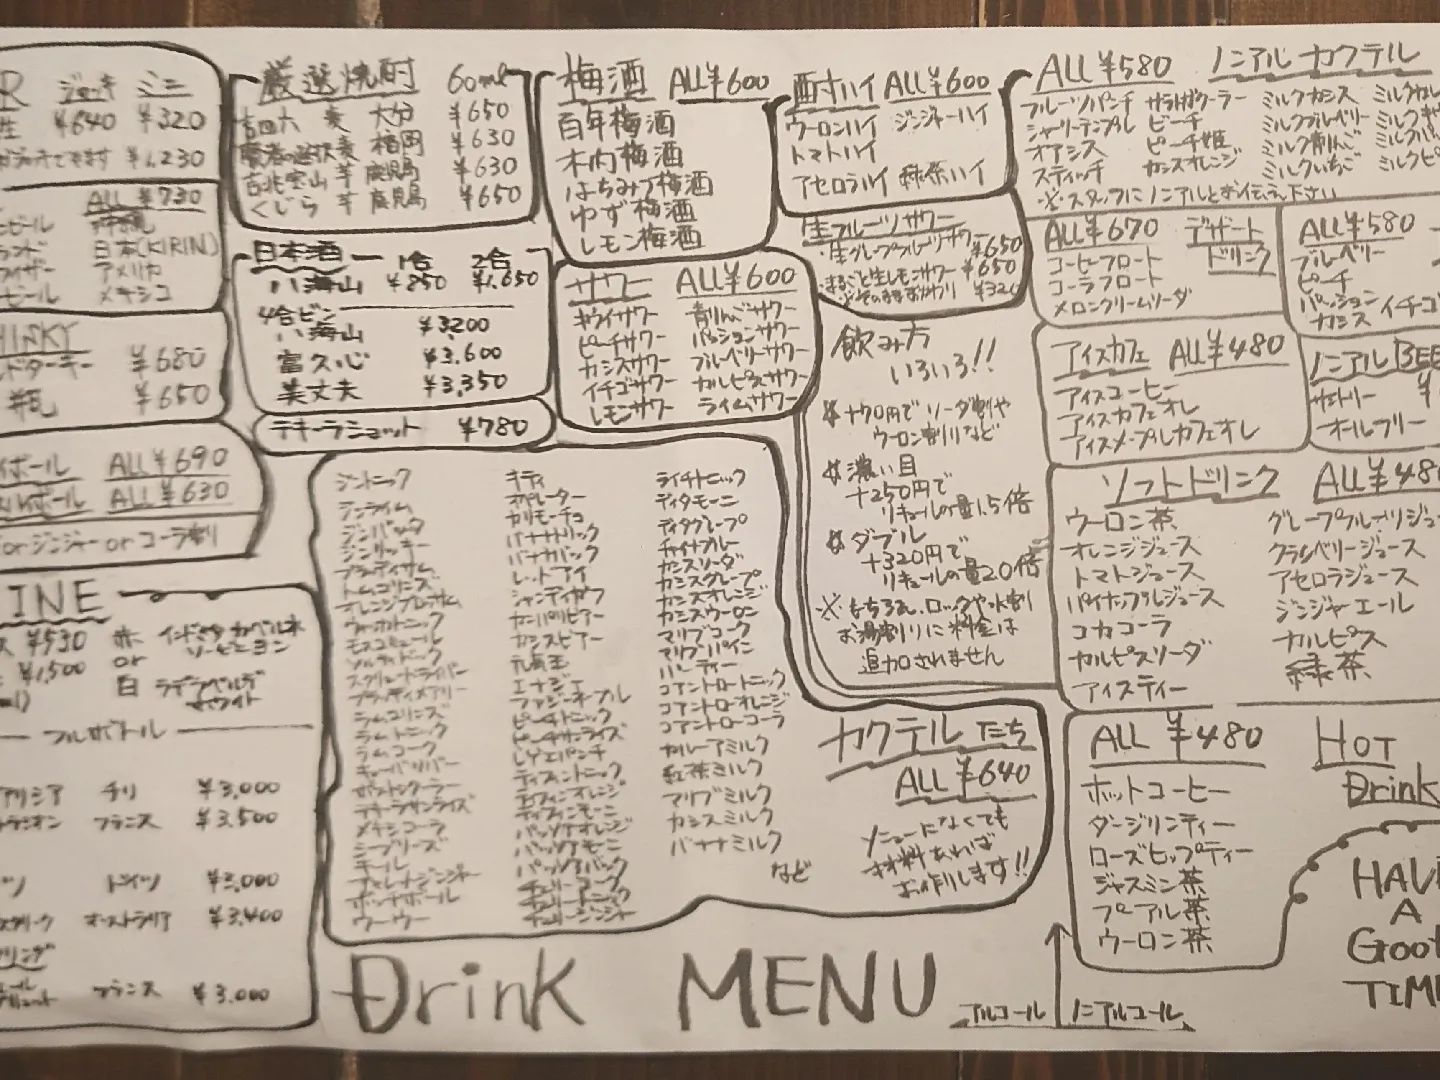 R ジョッキ ミニ
生 ¥640 ¥320
¥1,230
ALL ¥730
ビール 沖縄
日本(KIRIN)
アメリカ
ビール メキシコ
HISKY
ドターキー ¥680
¥650
イボール ALL ¥690
ボール ALL ¥630
orジンジャー or コーラ割
INE
ス ¥530 赤
¥1,500 or
白
フルボトル
チリ ¥3,000
フランス ¥3,500
ドイツ ¥3,000
オーストラリア ¥3,400
フランス ¥3,000
厳選焼酎 60ml
吉四六 麦 大分 ¥650
麦 福岡 ¥630
吉兆宝山 芋 鹿児島 ¥630
くじら 芋 鹿児島 ¥650
日本酒 1合 2合
八海山 ¥850 ¥1,650
4合ビン
八海山 ¥3,200
富久心 ¥3,600
美丈夫 ¥3,350
テキーラショット ¥780
梅酒 ALL¥600
百年梅酒
木内梅酒
はちみつ梅酒
ゆず梅酒
レモン梅酒
サワー ALL¥600
キウイサワー 青りんごサワー
ピーチサワー パッションサワー
カシスサワー ブルーベリーサワー
イチゴサワー カルピスサワー
レモンサワー ライムサワー
酎ハイ ALL¥600
ウーロンハイ ジンジャーハイ
トマトハイ
アセロラハイ 緑茶ハイ
生フルーツサワー
・生グレープフルーツサワー ¥650
・まるごと生レモンサワー ¥650
飲み方
いろいろ!!
+70円で ソーダ割や
ウーロン割りなど
濃い目
+250円で
リキュールの量1.5倍
ダブル
+320円で
リキュールの量2.0倍
※もちろん、ロックや水割
お湯割りに料金は
追加されません
ジントニック
ジンライム
ジンバック
ジンリッキー
トムコリンズ
オレンジブロッサム
ウォッカトニック
モスコミュール
ソルティドッグ
スクリュードライバー
ブラッディメアリー
ラムコリンズ
ラムトニック
ラムコーク
キューバリバー
テキーラサンライズ
メキシコーラ
シーブリーズ
ボッチボール
ウーウー
キティ
オペレーター
カリモーチョ
バナナトニック
バナナバック
レッドアイ
シャンディガフ
カンパリビアー
カシスビアー
エナジー
ファジーネーブル
ピーチトニック
レゲエパンチ
ティフィントニック
ティフィンオレンジ
パッソアオレンジ
パッソアモーニ
パッソアバック
チェリーコーク
チェリートニック
チェリージンジャー
ライチトニック
ディタモーニ
ディタグレープ
チャイナブルー
カシスソーダ
カシスグレープ
カシスオレンジ
カシスウーロン
マリブコーク
マリブパイン
コアントロートニック
コアントローオレンジ
コアントローコーラ
カルーアミルク
紅茶ミルク
マリブミルク
カシスミルク
バナナミルク
など
カクテルたち
ALL ¥640
メニューになくても
材料あれば
お作りします!!
ALL ¥580 ノンアルカクテル
フルーツパンチ サラトガクーラー ミルクカシス
シャーリーテンプル ピーチ ミルクブルーベリー
オアシス ピーチ姫 ミルク青りんご
スティッチ カシスオレンジ ミルクいちご
※スタッフにノンアルとお伝え下さい
ALL¥670 デザート
ドリンク
コーヒーフロート
コーラフロート
メロンクリームソーダ
ALL¥580
ブルーベリー
ピーチ
パッション
カシス イチゴ
アイスカフェ ALL¥480
アイスコーヒー
アイスカフェオレ
アイスメープルカフェオレ
ノンアルBEE
オールフリー
ソフトドリンク ALL¥480
ウーロン茶 グレープフルーツジュ
オレンジジュース クランベリージュース
トマトジュース アセロラジュース
パイナップルジュース ジンジャーエール
コカコーラ カルピス
カルピスソーダ 緑茶
アイスティー
ALL ¥480 HOT
Drink
ホットコーヒー
ダージリンティー
ローズヒップティー
ジャスミン茶
プーアル茶
ウーロン茶
HAVE
A
Good
TIM
Drink MENU
アルコール ノンアルコール